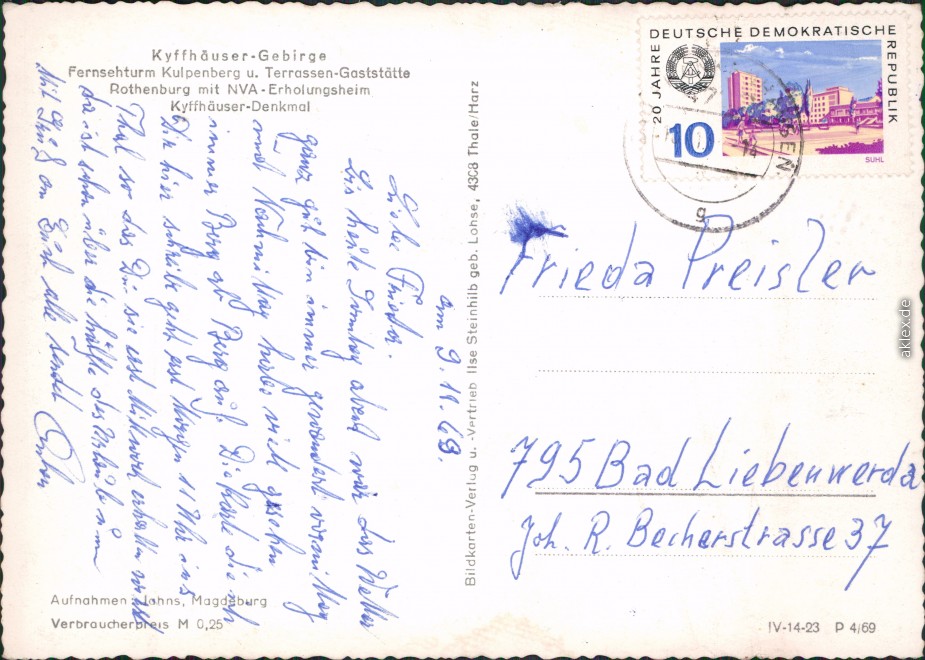 Kyffhäuser-Gebirge
Fernsehturm Kulpenberg u. Terrassen-Gaststätte
Rothenburg mit NVA-Erholungsheim
Kyffhäuser-Denkmal
am 9.11.69.
Liebe Frieda.
Bis heute Sonntag abend war das Wetter
ganz gut bin immer gewandert vormittag
und Nachmittag habe viel gesehen
immer Berg ab Berg auf. Die Karte die ich
Dir hier schreibe geht erst Morgen 11 Uhr ins
Thal so das Du sie erst Mittwoch erhalten wirst
da ist schon über die hälfte des Urlaubs um
Mit Gruß an Euch alle sendet
Aufnahmen: Jahns, Magdeburg
Verbraucherpreis M 0,25
Bildkarten-Verlag u. -Vertrieb Ilse Steinhilb geb. Lohse, 4308 Thale/Harz
20 JAHRE DEUTSCHE DEMOKRATISCHE REPUBLIK
10
SUHL
g
Frieda Preisler
795 Bad Liebenwerda
Joh. R. Becherstrasse 37
IV-14-23 P 4/69
aklex.de